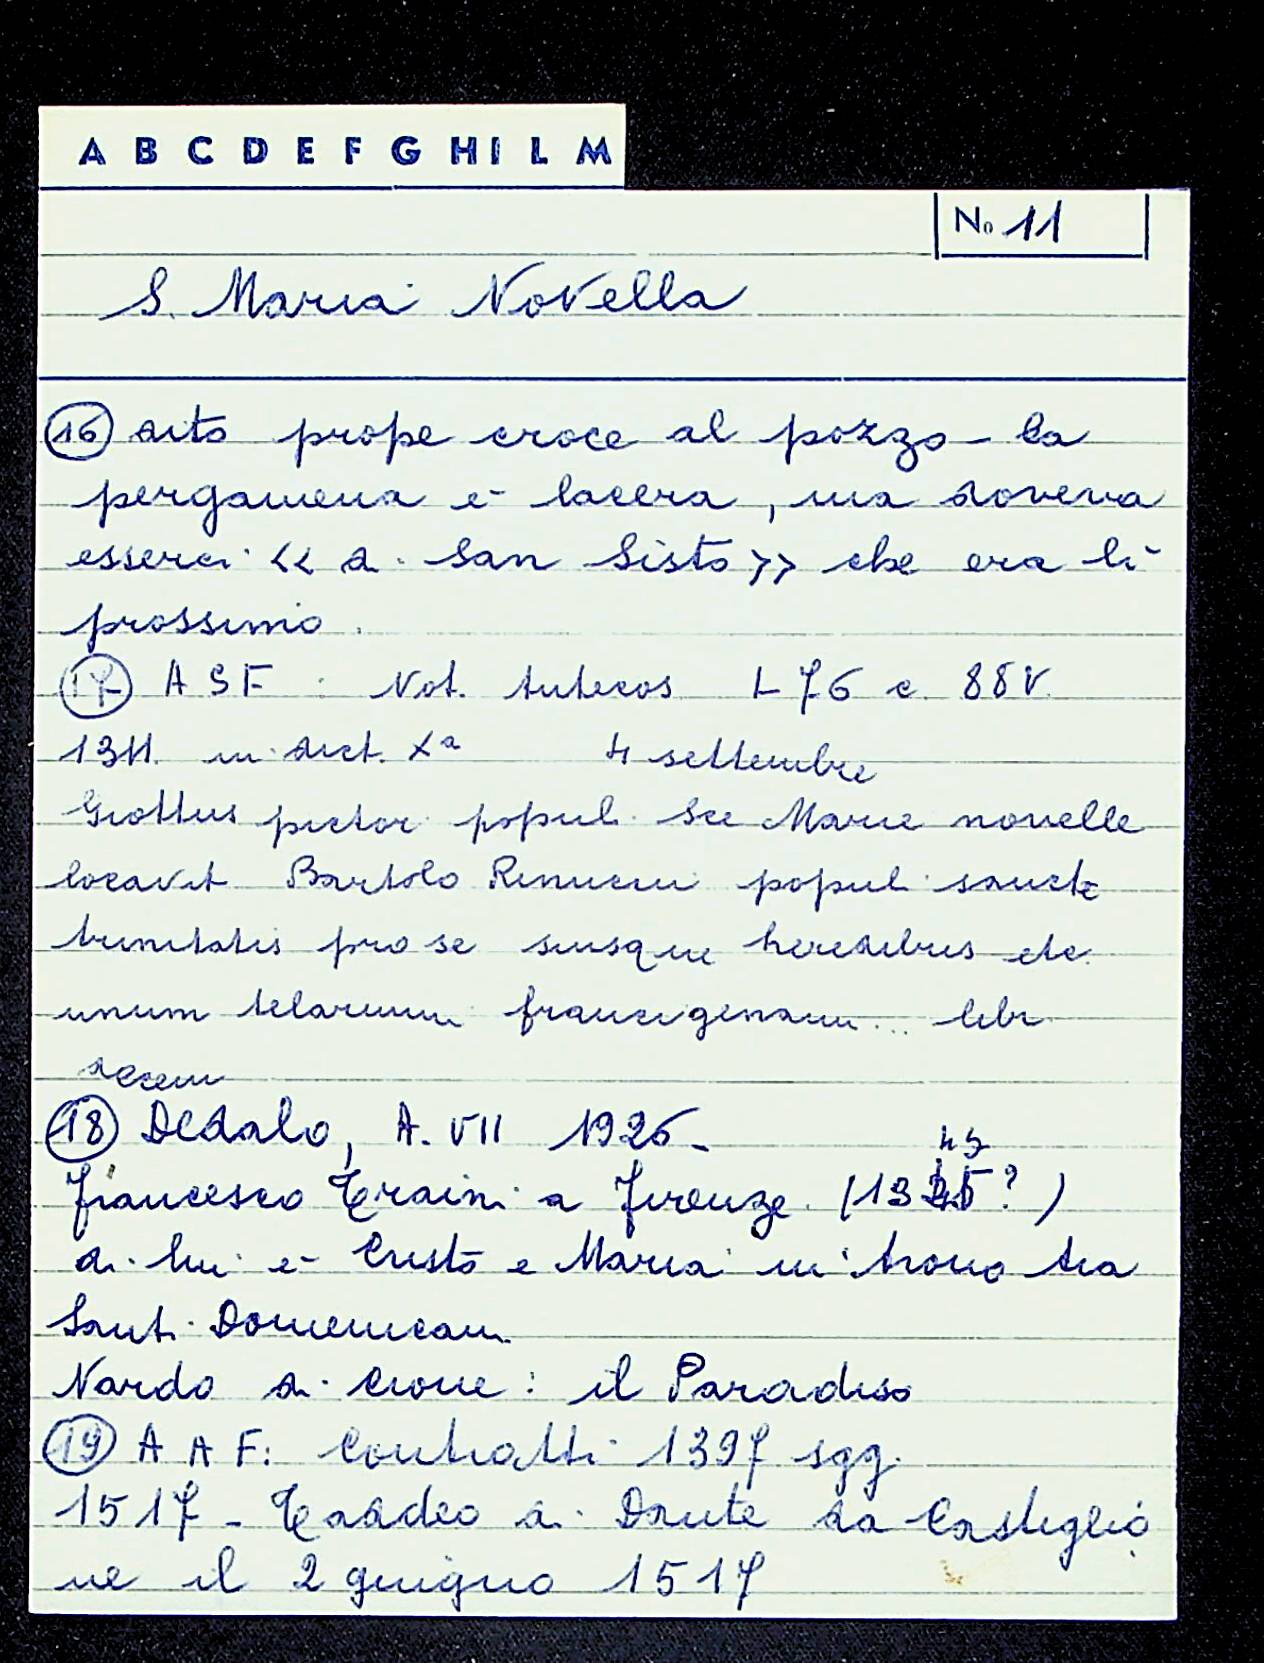 A B C D E F G H I L M
No 11
S. Maria Novella
16 sito prope croce al pozzo - la
pergamena è lacera, ma doveva
esserci << a San Sisto >> che era lì
prossimo.
17 ASF: Not. antecos L 76 c. 88v.
1311. indict. Xa 4 settembre
Giottus pictor popul. Sce Marie novelle
locavit Bartolo Rinucii popul. sancte
trinitatis pro se suisque heredibus etc.
unum telarium francigenum... libr.
decem
18 Dedalo, A. VII 1926-
Francesco Traini a Firenze. (1345?)
49
di lui è Cristo e Maria in trono tra
Santi Domenicani
Nardo di Cione: il Paradiso
19 A A F: Contratti 1397 sgg.
1517 - Taddeo di Dante da Castiglio
ne il 2 giugno 1517